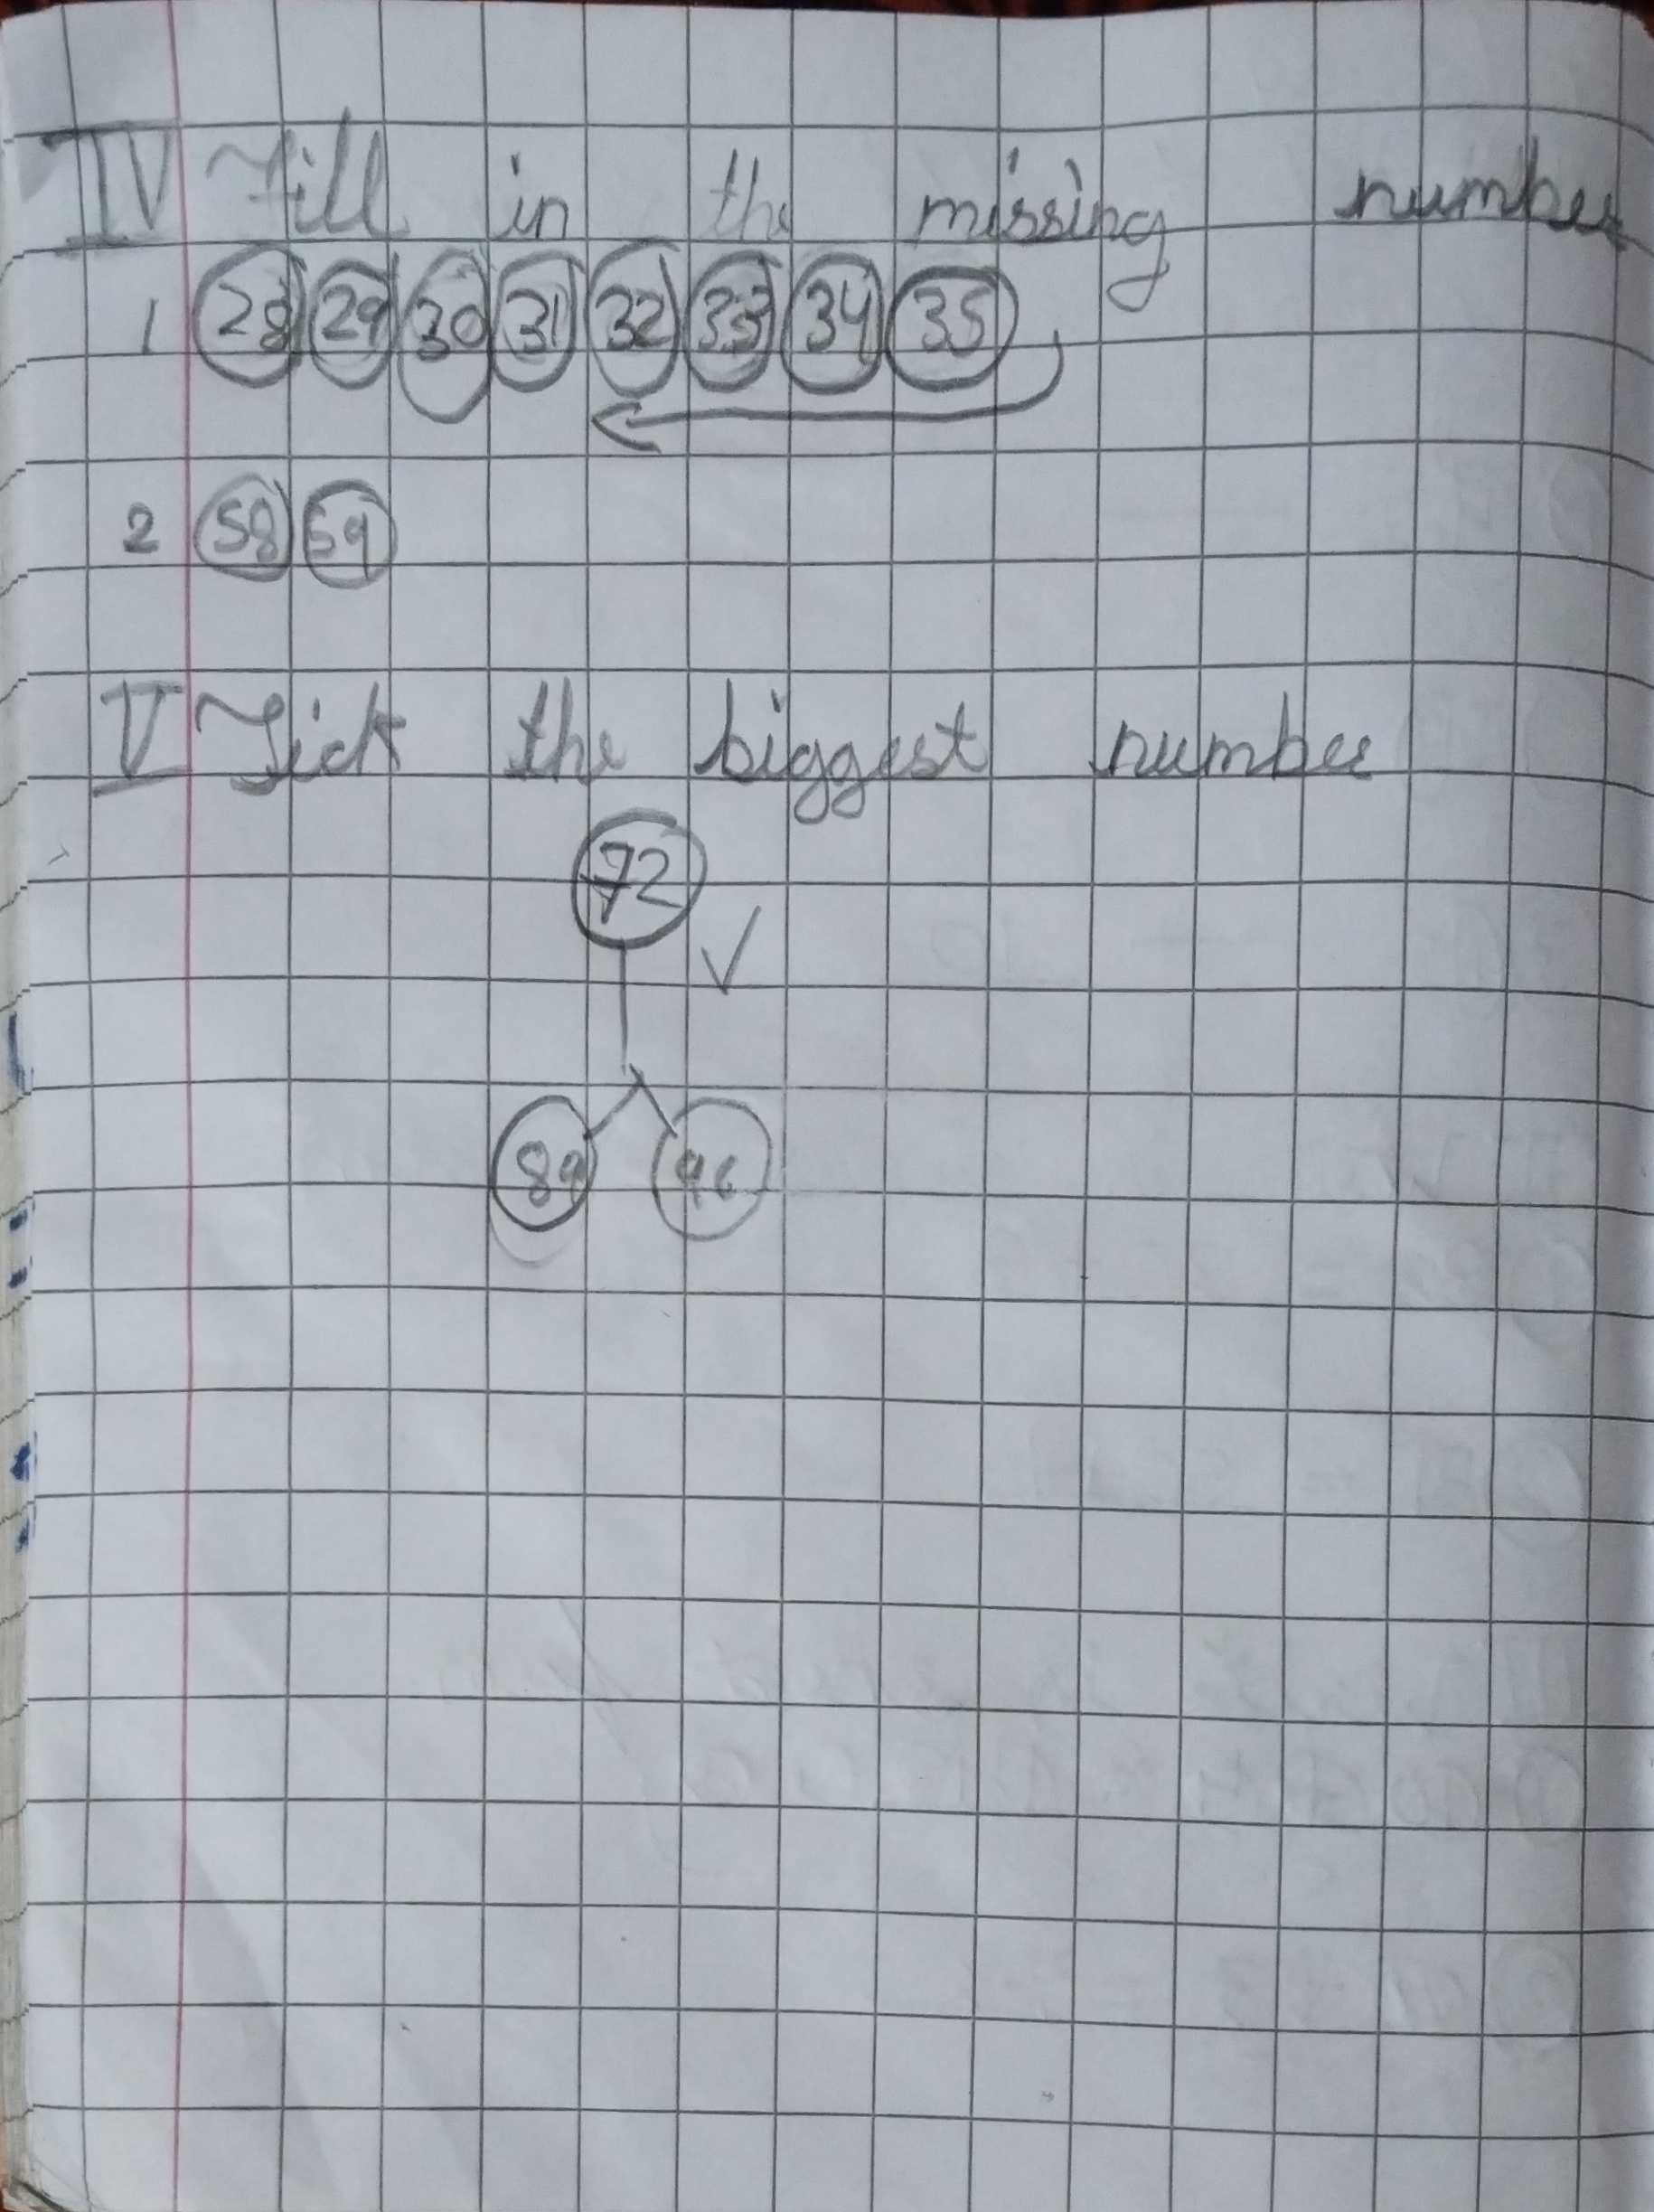 IV Fill in the missing number
1 28 29 30 31 32 33 34 35
2 58 59
V Tick the biggest number
72
89 96